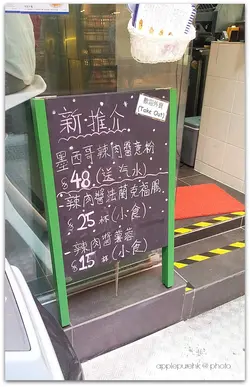 歡迎外賣
(Take Out)
新推介
墨西哥辣肉醬意粉
$48.(送汽水)
辣肉醬法蘭克福腸
$25/杯(小食)
辣肉醬薯蓉
$15/杯(小食)
applepurehk @ photo